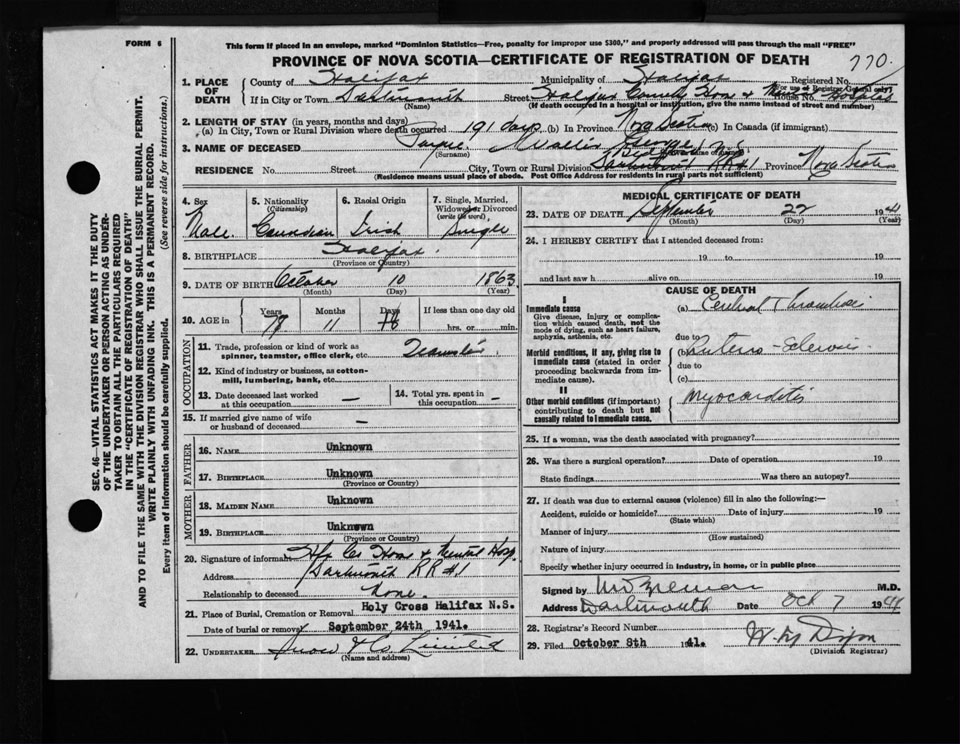 FORM 6
This form if placed in an envelope, marked "Dominion Statistics—Free, penalty for improper use $300," and properly addressed will pass through the mail "FREE"
PROVINCE OF NOVA SCOTIA—CERTIFICATE OF REGISTRATION OF DEATH
770.
1. PLACE OF DEATH County of Halifax Municipality of Halifax Registered No.
(For use of Registrar General only)
If in City or Town Dartmouth Street Halifax County Hos & Hospital House No.
(Name) (If death occurred in a hospital or institution, give the name instead of street and number)
2. LENGTH OF STAY (in years, months and days)
(a) In City, Town or Rural Division where death occurred 191 days (b) In Province Nova Scotia (c) In Canada (if immigrant)
3. NAME OF DECEASED
(Surname)
RESIDENCE No. Street City, Town or Rural Division RR#1 Province Nova Scotia
(Residence means usual place of abode. Post Office Address for residents in rural parts not sufficient)
4. Sex Male
5. Nationality (Citizenship) Canadian
6. Racial Origin Irish
7. Single, Married, Widowed or Divorced (write the word) Single
8. BIRTHPLACE Halifax.
(Province or Country)
9. DATE OF BIRTH October 10 1863
(Month) (Day) (Year)
10. AGE in Years Months Days If less than one day old
78 11 hrs. or min.
OCCUPATION
11. Trade, profession or kind of work as spinner, teamster, office clerk, etc. Teamster
12. Kind of industry or business, as cotton-mill, lumbering, bank, etc.
13. Date deceased last worked at this occupation —
14. Total yrs. spent in this occupation —
15. If married give name of wife or husband of deceased —
FATHER
16. NAME Unknown
17. BIRTHPLACE Unknown
(Province or Country)
MOTHER
18. MAIDEN NAME Unknown
19. BIRTHPLACE Unknown
(Province or Country)
20. Signature of informant Hfx Co Hos & Mental Hosp.
Address Dartmouth RR#1
Relationship to deceased None.
21. Place of Burial, Cremation or Removal Holy Cross Halifax N.S.
Date of burial or removal September 24th 1941.
22. UNDERTAKER Snow & Co. Limited
(Name and address)
MEDICAL CERTIFICATE OF DEATH
23. DATE OF DEATH September 22 1941
(Month) (Day) (Year)
24. I HEREBY CERTIFY that I attended deceased from:
19 to 19
and last saw h alive on 19
CAUSE OF DEATH
I
Immediate cause
Give disease, injury or complication which caused death, not the mode of dying, such as heart failure, asphyxia, asthenia, etc.
(a) Cerebral Thrombosis
due to
Morbid conditions, if any, giving rise to immediate cause (stated in order proceeding backwards from immediate cause).
(b) Arterio-Sclerosis.
due to
(c)
II
Other morbid conditions (if important) contributing to death but not causally related to immediate cause.
Myocarditis
25. If a woman, was the death associated with pregnancy?
26. Was there a surgical operation? Date of operation 19
State findings Was there an autopsy?
27. If death was due to external causes (violence) fill in also the following:—
Accident, suicide or homicide? Date of injury 19
(State which)
Manner of injury
(How sustained)
Nature of injury
Specify whether injury occurred in industry, in home, or in public place
Signed by M.D.
Address Dartmouth Date Oct 7 1941
28. Registrar's Record Number
29. Filed October 8th 1941.
(Division Registrar)
SEC. 46—VITAL STATISTICS ACT MAKES IT THE DUTY
OF THE UNDERTAKER OR PERSON ACTING AS UNDER-
TAKER TO OBTAIN ALL THE PARTICULARS REQUIRED
IN THE "CERTIFICATE OF REGISTRATION OF DEATH"
AND TO FILE THE SAME WITH THE DIVISION REGISTRAR WHO SHALL ISSUE THE BURIAL PERMIT.
WRITE PLAINLY WITH UNFADING INK. THIS IS A PERMANENT RECORD.
Every item of information should be carefully supplied. (See reverse side for instructions.)